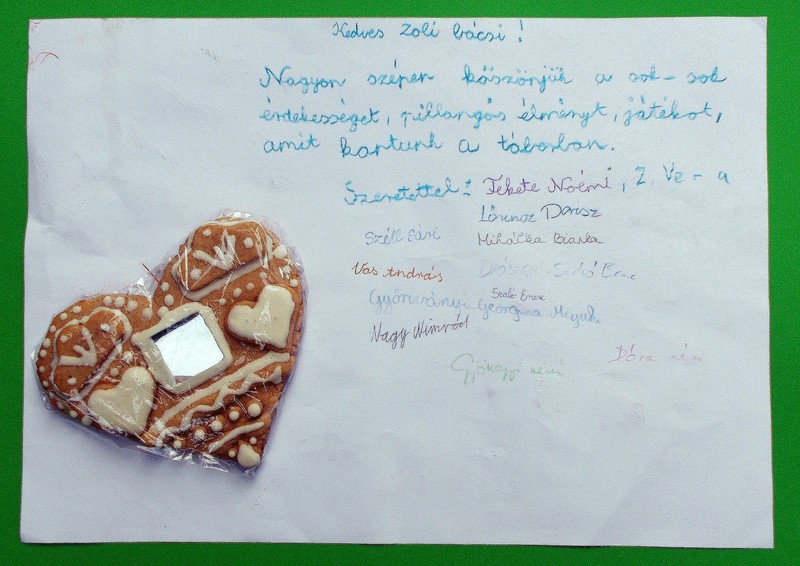 Kedves Zoli bácsi!
Nagyon szépen köszönjük a sok-sok
érdekességet, pillangós élményt, játékot,
amit kaptunk a táborban.
Szeretettel: Fekete Noémi, 2. Vz-a
Lőrincz Dorisz
Széll Sári Mihálka Bianka
Vas András Szabó Emese
Györiványi Georgina Miyuki
Nagy Nimród
Gyöngyi néni Dóra néni